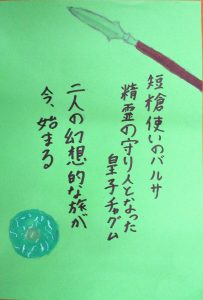 短槍使いのバルサ
精霊の守り人となった
皇子チャグム
二人の幻想的な旅が
今、始まる